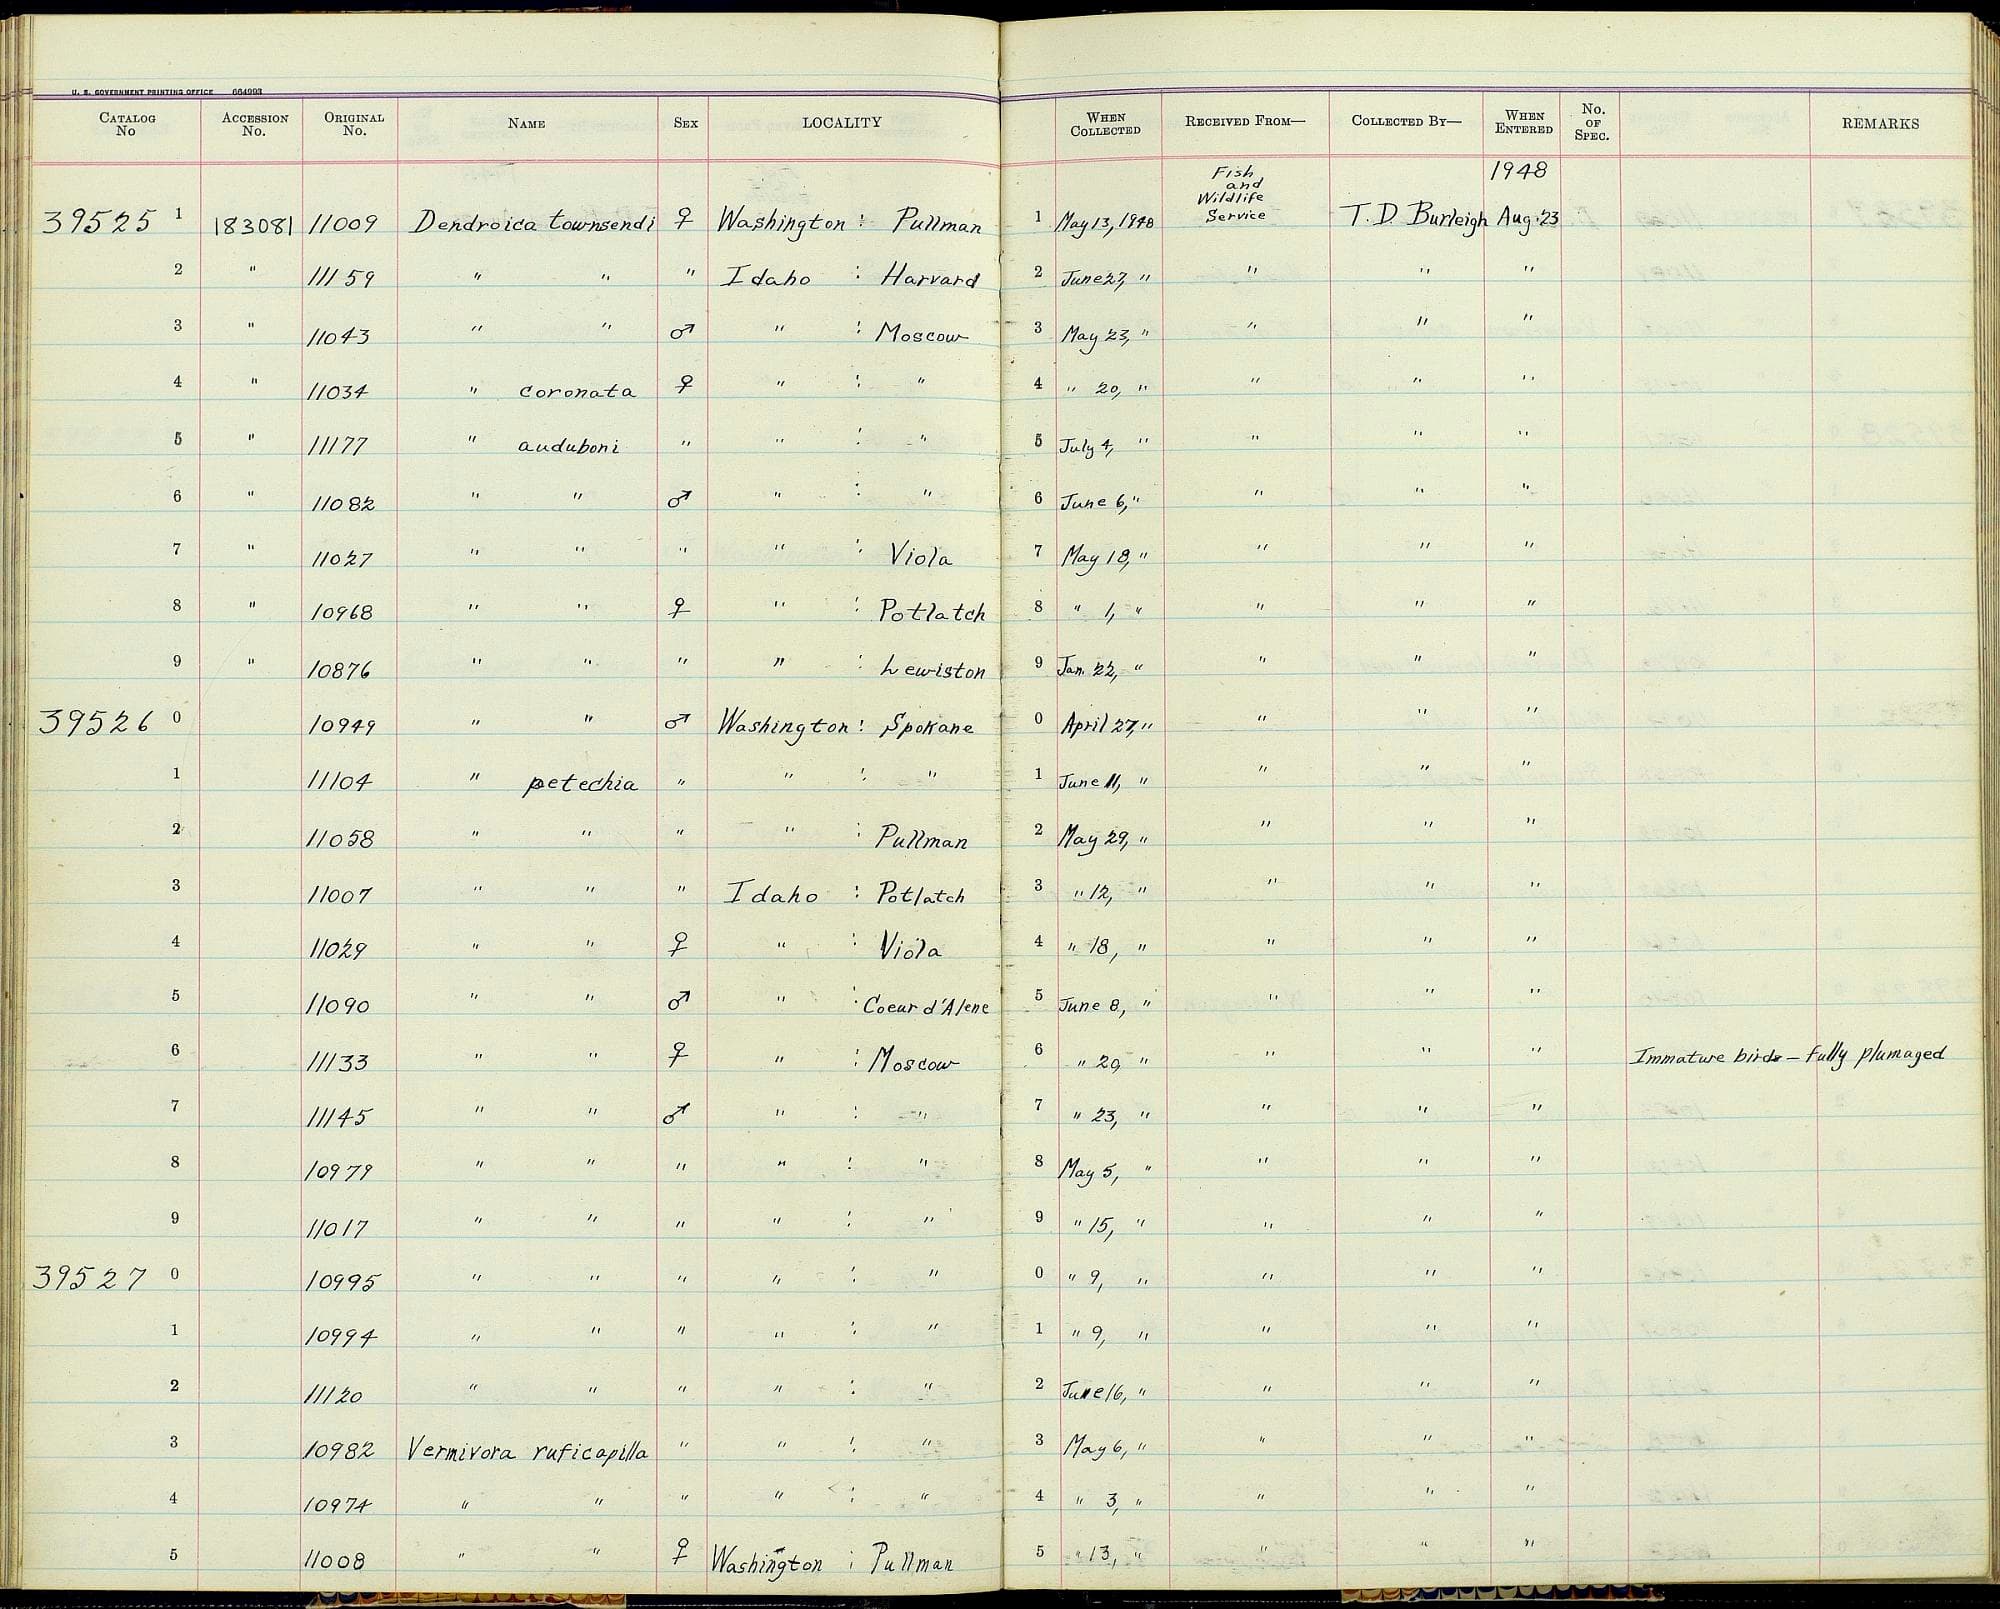 U. S. GOVERNMENT PRINTING OFFICE 664993
CATALOG No ACCESSION No. ORIGINAL No. NAME SEX LOCALITY WHEN COLLECTED RECEIVED FROM— COLLECTED BY— WHEN ENTERED No. OF SPEC. REMARKS
39525 1 183081 11009 Dendroica townsendi ♀ Washington : Pullman 1 May 13, 1948 Fish and Wildlife Service T. D. Burleigh 1948 Aug. 23
2 " 11159 " " " Idaho : Harvard 2 June 27, " " " "
3 " 11043 " " ♂ " : Moscow 3 May 23, " " " "
4 " 11034 " coronata ♀ " : " 4 " 20, " " " "
5 " 11177 " auduboni " " : " 5 July 4, " " " "
6 " 11082 " " ♂ " : " 6 June 6, " " " "
7 " 11027 " " " " : Viola 7 May 18, " " " "
8 " 10968 " " ♀ " : Potlatch 8 " 1, " " " "
9 " 10876 " " " " : Lewiston 9 Jan. 22, " " " "
39526 0 10949 " " ♂ Washington : Spokane 0 April 27, " " " "
1 11104 " petechia " " : " 1 June 11, " " " "
2 11058 " " " " : Pullman 2 May 29, " " " "
3 11007 " " " Idaho : Potlatch 3 " 12, " " " "
4 11029 " " ♀ " : Viola 4 " 18, " " " "
5 11090 " " ♂ " : Coeur d'Alene 5 June 8, " " " "
6 11133 " " ♀ " : Moscow 6 " 20, " " " " Immature birds — fully plumaged
7 11145 " " ♂ " : " 7 " 23, " " " "
8 10979 " " " " : " 8 May 5, " " " "
9 11017 " " " " : " 9 " 15, " " " "
39527 0 10995 " " " " : " 0 " 9, " " " "
1 10994 " " " " : " 1 " 9, " " " "
2 11120 " " " " : " 2 June 16, " " " "
3 10982 Vermivora ruficapilla " " : " 3 May 6, " " " "
4 10974 " " " " : " 4 " 3, " " " "
5 11008 " " ♀ Washington : Pullman 5 " 13, " " " "